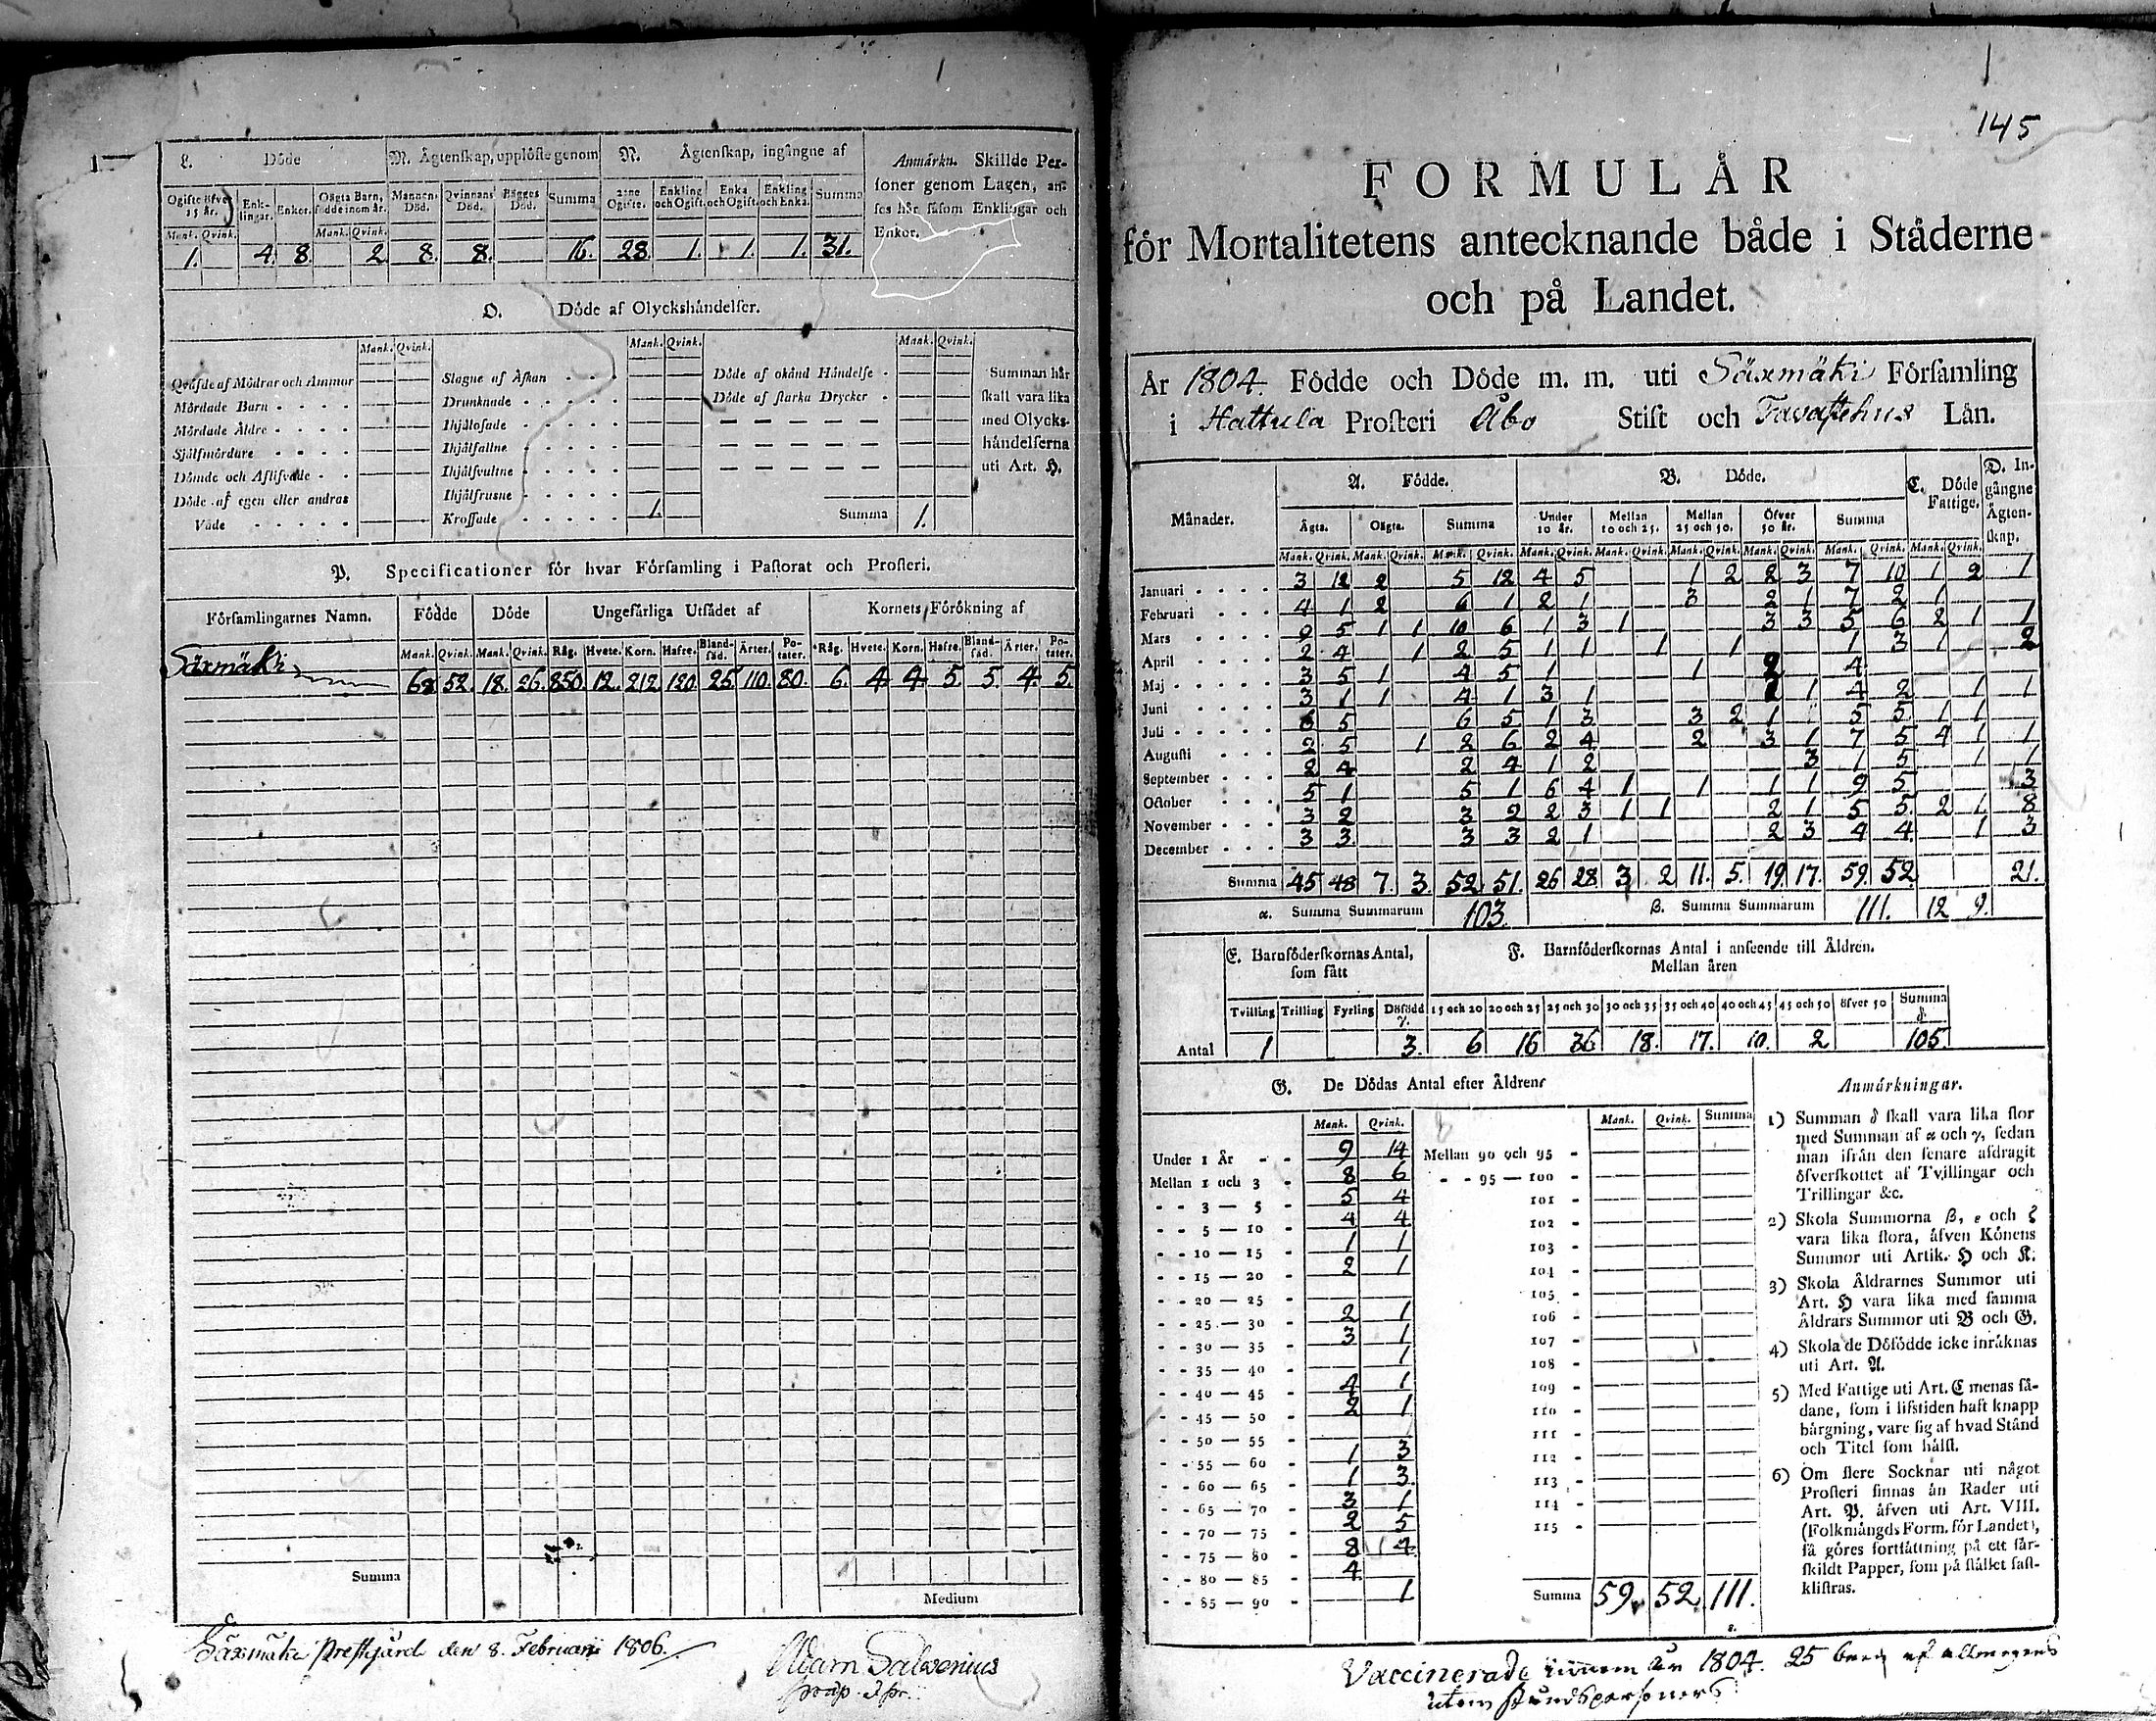 1
L. Döde M. Ägtenskap, upplöste genom N. Ägtenskap, ingångne af Anmärkn. Skillde Per-
soner genom Lagen, an-
ses här såsom Enklingar och
Enkor.
Ogifte öfver 15 år. Enk-lingar. Enkor. Oägta Barn, födde inom år. Mannens Död. Qvinnans Död. Bägges Död. Summa 2:ne Ogifte. Enkling och Ogift. Enka och Ogift. Enkling och Enka. Summa
Mank. Qvink. Mank. Qvink.
1. 4. 8. 2 8. 8. 16. 28. 1. 1. 1. 31.
O. Döde af Olyckshändelser.
Mank. Qvink. Mank. Qvink. Mank. Qvink.
Qväfde af Mödrar och Ammor Slagne af Åskan Döde af okänd Händelse Summan här
Mördade Barn Drunknade Döde af starka Drycker skall vara lika
Mördade Äldre Ihjälosade med Olycks-
Själfmördare Ihjälfallne händelserna
Dömde och Aflifvade Ihjälsvultne uti Art. H.
Döde af egen eller andras Ihjälfrusne
Våde Krossade 1. Summa 1.
P. Specificationer för hvar Församling i Pastorat och Prosteri.
Församlingarnes Namn. Födde Döde Ungefärliga Utsädet af Kornets Förökning af
Mank. Qvink. Mank. Qvink. Råg. Hvete. Korn. Hafre. Bland-säd. Ärter. Po-tater. Råg. Hvete. Korn. Hafre. Bland-säd. Ärter. Po-tater.
Säxmäki 52. 18. 26. 850. 12. 212. 120. 25. 110. 80. 6. 4. 4. 5. 5. 4. 5.
Summa
Medium
Säxmäki Prestgård den 8. Februarii 1806.
Adam Salvenius
145
FORMULÅR
för Mortalitetens antecknande både i Städerne
och på Landet.
År 1804. Födde och Döde m. m. uti Säxmäki Församling
i Hattula Prosteri Åbo Stift och Tavastehus Län.
Månader. A. Födde. B. Döde. C. Döde Fattige. D. In-gångne Ägten-skap.
Ägta. Oägta. Summa Under 10 år. Mellan 10 och 25. Mellan 25 och 50. Öfver 50 år. Summa
Mank. Qvink. Mank. Qvink. Mank. Qvink. Mank. Qvink. Mank. Qvink. Mank. Qvink. Mank. Qvink. Mank. Qvink. Mank. Qvink.
Januari 3 12 2 5 12 4 5 1 2 2 3 7 10 1 2 1
Februari 4 1 2 6 1 2 1 3 2 1 7 2 1
Mars 9 5 1 1 10 6 1 3 1 3 3 5 6 2 1 1
April 2 4 1 2 5 1 1 1 1 1 3 1 2
Maj 3 5 1 4 5 1 1 2 4
Juni 3 1 1 4 1 3 1 1 1 4 2 1 1
Juli 6 5 6 5 1 3 3 2 1 5 5 1 1
Augusti 2 5 1 2 6 2 4 2 3 1 7 5 4 1 1
September 2 4 2 4 1 2 3 1 5 1 1
October 5 1 5 1 6 4 1 1 1 1 9 5 3
November 3 2 3 2 2 3 1 1 2 1 5 5 2 1 8
December 3 3 3 3 2 1 2 3 4 4 1 3
Summa 45 48 7. 3. 52. 51. 26 28 3 2 11. 5. 19 17. 59. 52. 21.
α. Summa Summarum 103. β. Summa Summarum 111. 12 9.
E. Barnföderskornas Antal, som fått F. Barnföderskornas Antal i anseende till Åldren.
Mellan åren
Tvilling Trilling Fyrling Dödfödd γ. 15 och 20 20 och 25 25 och 30 30 och 35 35 och 40 40 och 45 45 och 50 öfver 50 Summa δ.
Antal 1 3. 6 16 36 18. 17. 10. 2 105.
G. De Dödas Antal efter Åldren
Mank. Qvink. Mank. Qvink. Summa
Under 1 År 9 14 Mellan 90 och 95
Mellan 1 och 3 8 6 95 — 100
3 — 5 5 4 101
5 — 10 4 4 102
10 — 15 1 1 103
15 — 20 2 1 104
20 — 25 105
25 — 30 2 1 106
30 — 35 3 1 107
35 — 40 1 108
40 — 45 4 1 109
45 — 50 2 1 110
50 — 55 111
55 — 60 1 3 112
60 — 65 1 3. 113
65 — 70 3 1 114
70 — 75 2 5 115
75 — 80 8 4
80 — 85 4
85 — 90 1 Summa 59. 52. 111.
Anmärkningar.
1) Summan δ skall vara lika stor
med Summan af α och γ, sedan
man ifrån den senare afdragit
öfverskottet af Tvillingar och
Trillingar &c.
2) Skola Summorna β, ε och ζ
vara lika stora, äfven Könens
Summor uti Artik. H och K.
3) Skola Åldrarnes Summor uti
Art. H vara lika med samma
Åldrars Summor uti B och G.
4) Skola de Dödfödde icke inräknas
uti Art. A.
5) Med Fattige uti Art. C menas så-
dane, som i lifstiden haft knapp
bärgning, vare sig af hvad Stånd
och Titel som hälst.
6) Om flere Socknar uti något
Prosteri finnas än Rader uti
Art. P. äfven uti Art. VIII.
(Folkmängds Form. för Landet),
så göres fortsättning på ett sär-
skildt Papper, som på stället fast-
klistras.
Vaccinerade innom år 1804. 25 barn af allmogens
utom ståndspersoners